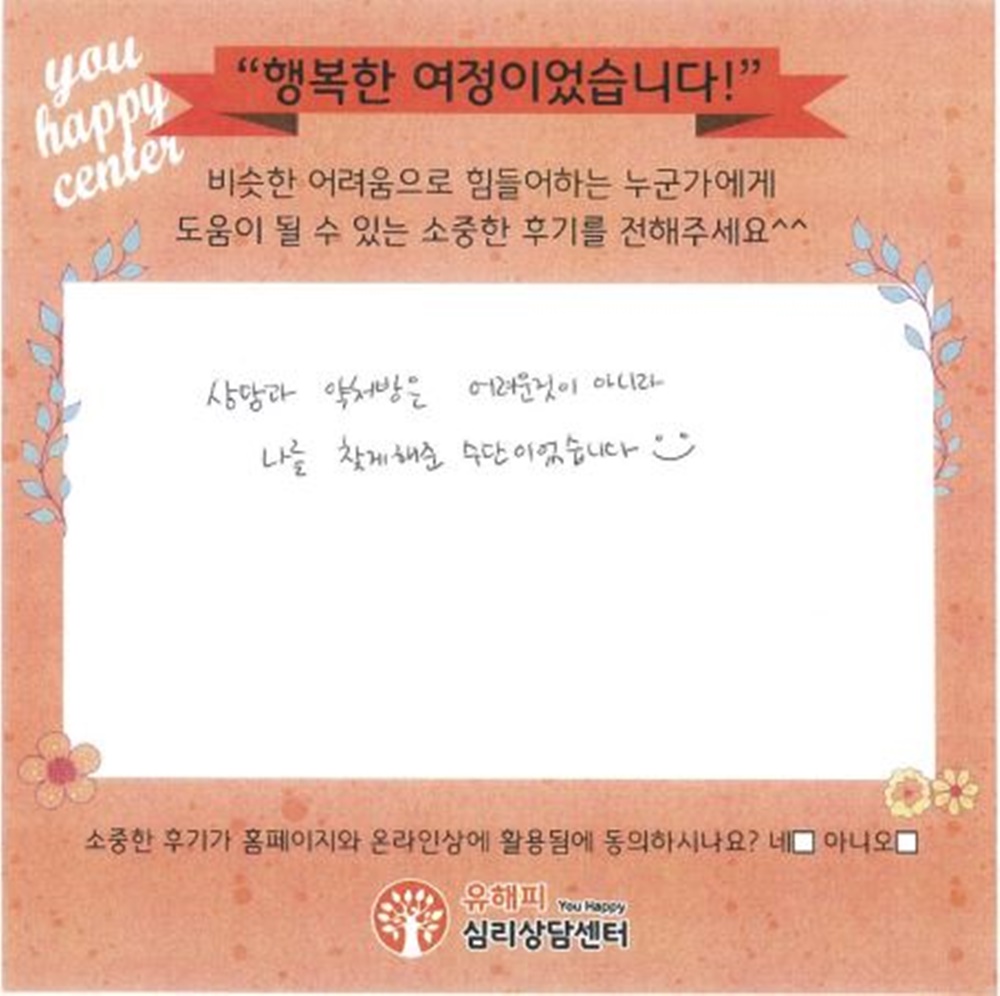 you
happy
center
“행복한 여정이었습니다!”
비슷한 어려움으로 힘들어하는 누군가에게
도움이 될 수 있는 소중한 후기를 전해주세요^^
상담과 약처방은 어려운것이 아니라
나를 찾게해준 수단이었습니다
소중한 후기가 홈페이지와 온라인상에 활용됨에 동의하시나요? 네□ 아니오□
유해피 You Happy
심리상담센터